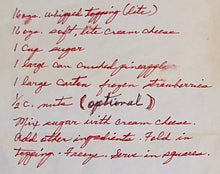 16oz. whipped topping (lite)
16oz. soft lite cream cheese
1 cup sugar
1 large can crushed pineapple
1 large carton frozen strawberries
½ c. nuts (optional)
Mix sugar with cream cheese.
Add other ingredients. Fold in
topping. Freeze. Serve in squares.